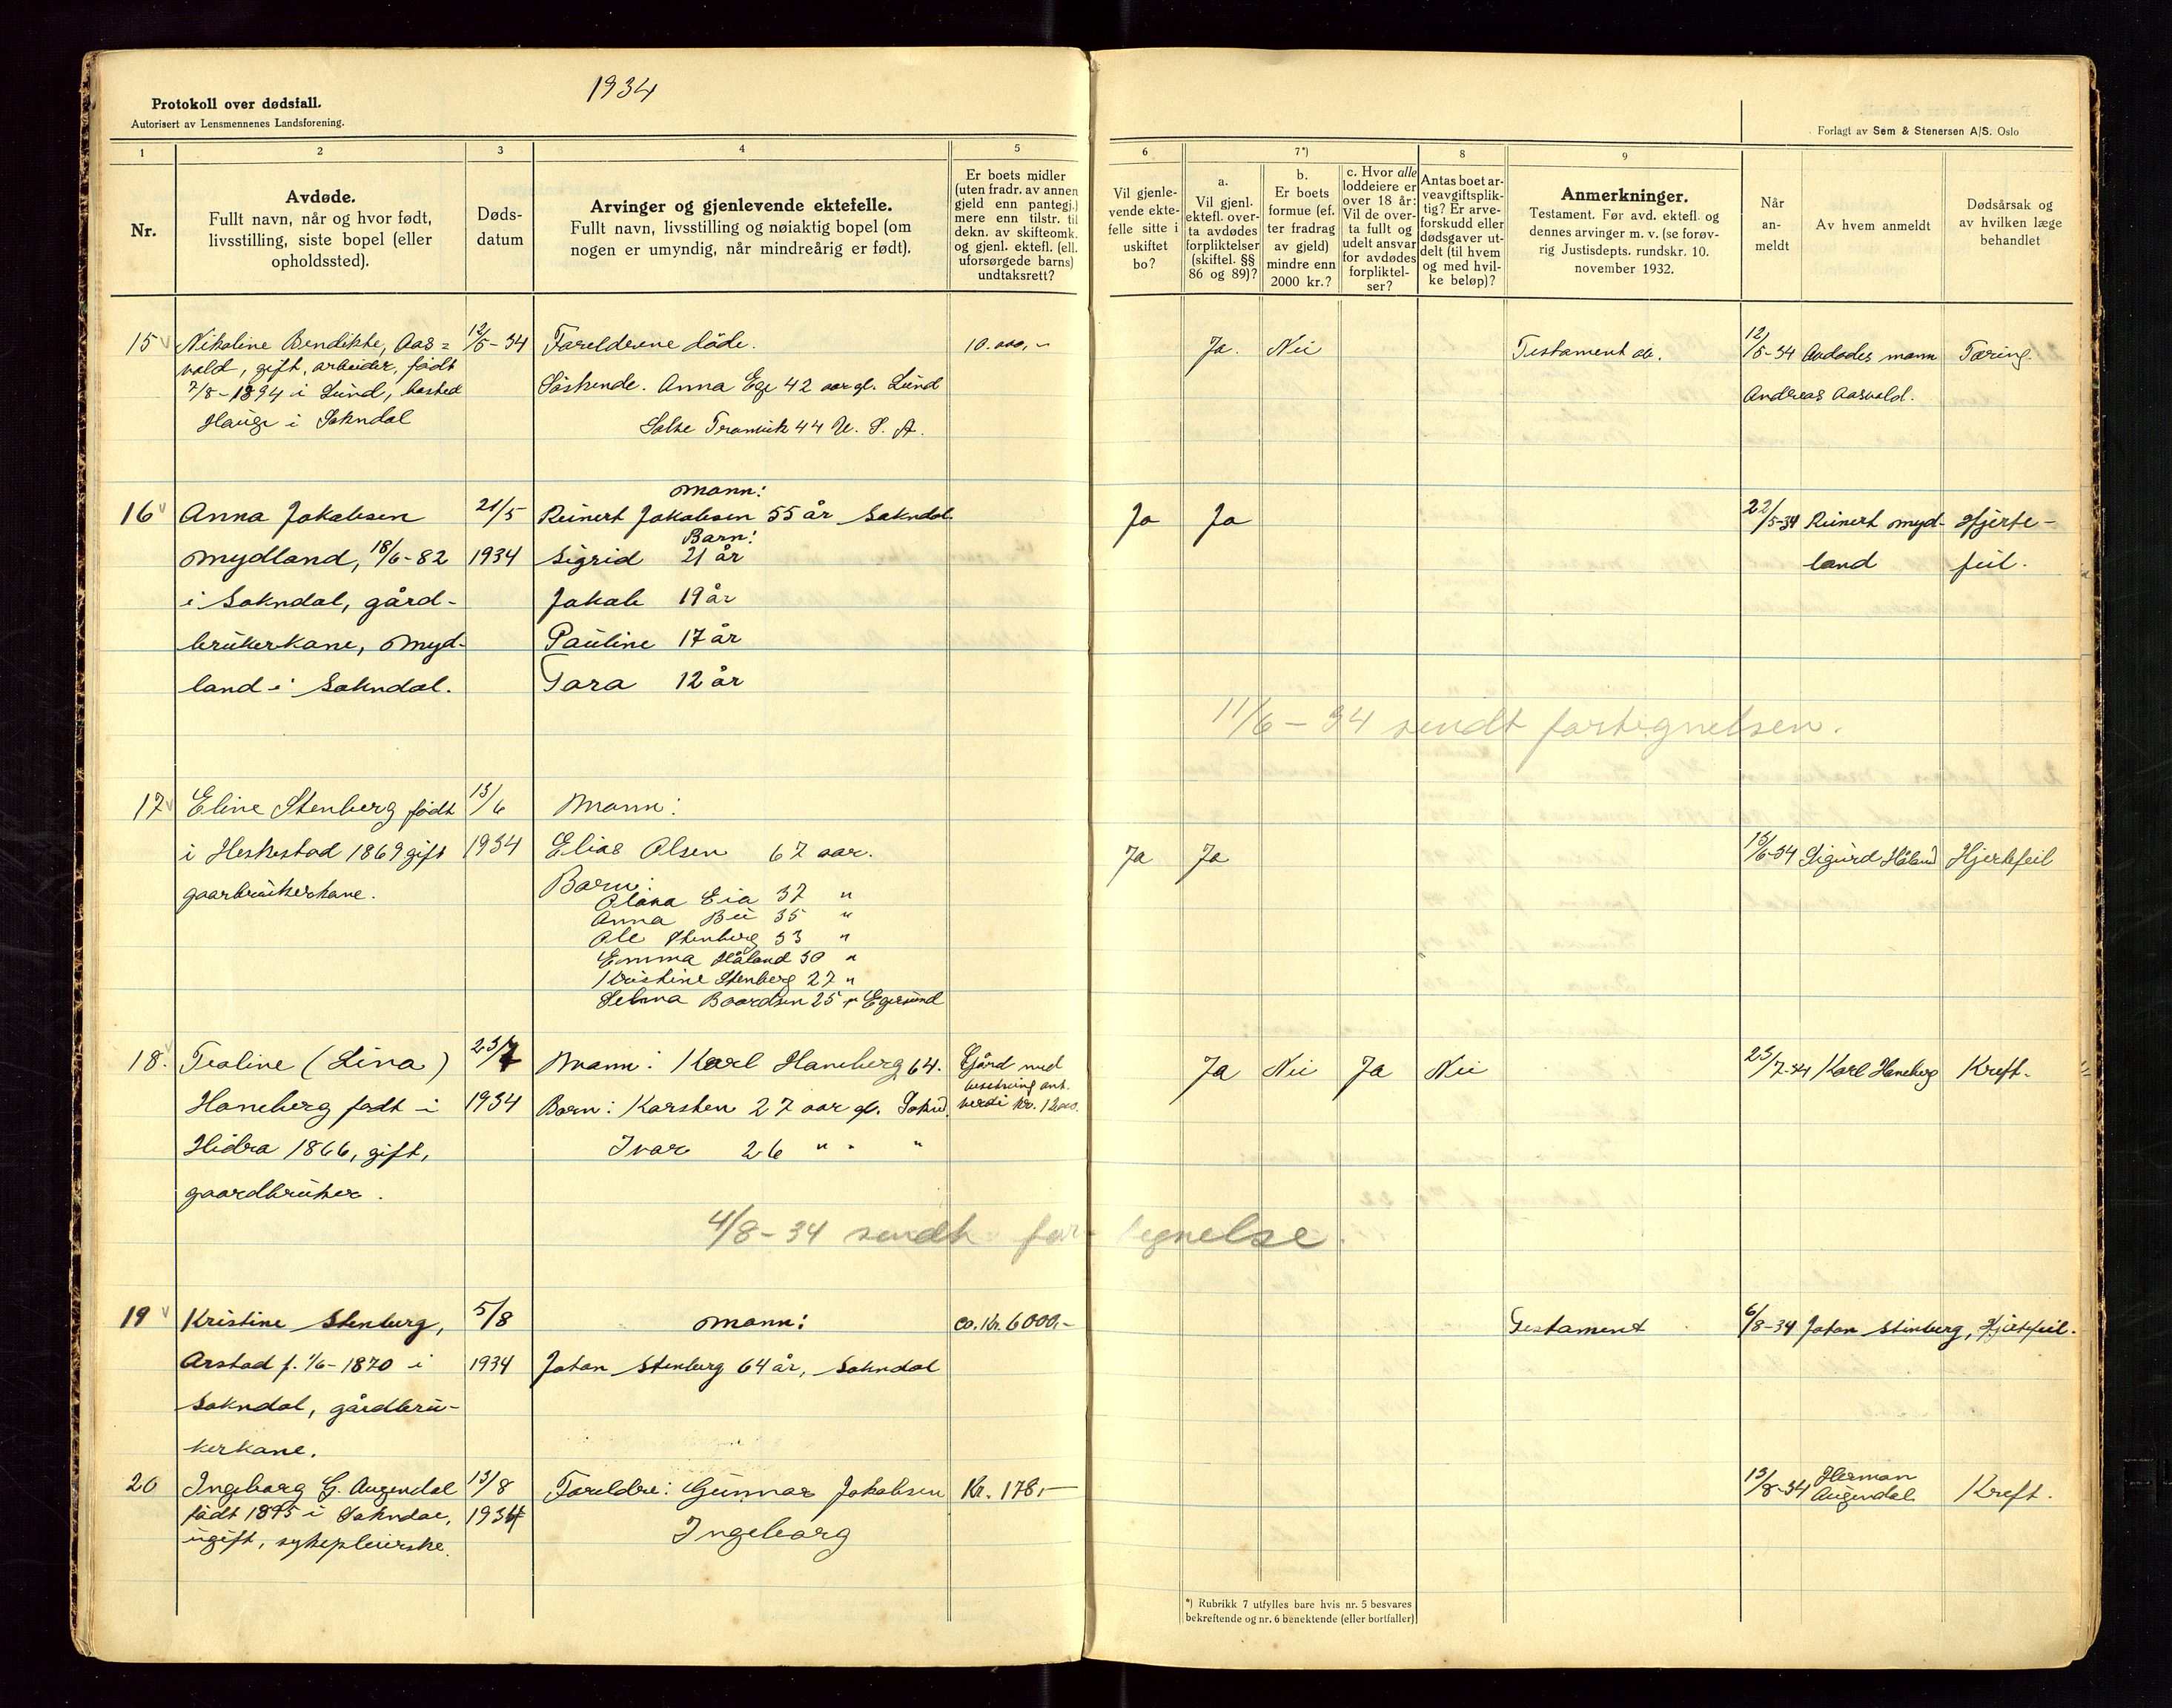 1934
Protokoll over dødsfall.
Autorisert av Lensmennenes Landsforening.
Forlagt av Sem & Stenersen A/S. Oslo
1 2 3 4 5 6 7*) 8 9
Nr.
Avdøde.
Fullt navn, når og hvor født,
livsstilling, siste bopel (eller
opholdssted).
Døds-
datum
Arvinger og gjenlevende ektefelle.
Fullt navn, livsstilling og nøiaktig bopel (om
nogen er umyndig, når mindreårig er født).
Er boets midler
(uten fradr. av annen
gjeld enn pantegj.)
mere enn tilstr. til
dekn. av skifteomk.
og gjenl. ektefl. (ell.
uforsørgede barns)
undtaksrett?
Vil gjenle-
vende ekte-
felle sitte i
uskiftet
bo?
a.
Vil gjenl.
ektefl. over-
ta avdødes
forpliktelser
(skiftel. §§
86 og 89)?
b.
Er boets
formue (ef.
ter fradrag
av gjeld)
mindre enn
2000 kr.?
c. Hvor alle
loddeiere er
over 18 år:
Vil de over-
ta fullt og
udelt ansvar
for avdødes
forpliktel-
ser?
Antas boet ar-
veavgiftsplik-
tig? Er arve-
forskudd eller
dødsgaver ut-
delt (til hvem
og med hvil-
ke beløp)?
Anmerkninger.
Testament. Før avd. ektefl. og
dennes arvinger m. v. (se forøv-
rig Justisdepts. rundskr. 10.
november 1932.
Når
an-
meldt
Av hvem anmeldt
Dødsårsak og
av hvilken læge
behandlet
15
Nikoline Bendikte, Aas=
vold, gift, arbeider, født
7/8-1894 i Lund, bosted
Hauge i Sokndal
12/5-34
Foreldrene døde.
Søskende. Anna Ege 42 aar gl. Lund
44 U. S. A.
10.000,-
Ja. Nei
Testament
12/5-34 Avdødes mann
Andreas Aasvold.
Tæring.
16
Anna Jakobsen
Mydland, 18/6-82
i Sokndal, gård-
brukerkone, Myd-
land i Sokndal.
21/5
1934
Mann:
Reinert Jakobsen 55 år Sokndal.
Barn:
Sigrid 21 år
Jakob 19 år
Pauline 17 år
Tora 12 år
Ja Ja
22/5-34 Reinert Myd-
land
Hjerte-
feil.
11/6-34 sendt fortegnelsen.
17
Eline Stenberg født
i Heskestad 1869 gift
gaarbrukerkone.
13/6
1934
Mann:
Elias Olsen 67 aar.
Barn:
Olava Eia 37 "
Anna Bu 35 "
Ole Stenberg 33 "
Emma Håland 30 "
Kristine Stenberg 27 "
Selma Boardsen 25 " Egersund
Ja Ja
15/6-34 Sigurd Håland
Hjertefeil
18.
Tealine (Lina)
Haneberg født i
Hidra 1866, gift,
gaardbruker.
23/7
1934
Mann: Karl Haneberg 64.
Barn: Karsten 27 aar gl. Sokn.
Ivar 26 " " "
Gård med
besetning ant.
verdi kr. 12000.
Ja Nei Ja Nei
23/7-34 Karl Haneberg
Kreft.
4/8-34 sendt fortegnelse.
19
Kristine Stenberg,
Årstad f. 1/6-1870 i
Sokndal, gårdbru-
kerkone.
5/8
1934
Mann:
Johan Stenberg 64 år, Sokndal
ca. kr. 6000.-
Testament
6/8-34 Johan Stenberg,
Hjertefeil.
20
Ingeborg G. Augendal
født 1895 i Sokndal,
ugift, sykepleierske.
13/8
1934
Foreldre: Gunnar Jakobsen
Ingeborg
Kr. 178,-
13/8-34 Herman
Augendal
Kreft.
*) Rubrikk 7 utfylles bare hvis nr. 5 besvares
bekreftende og nr. 6 benektende (eller bortfaller)